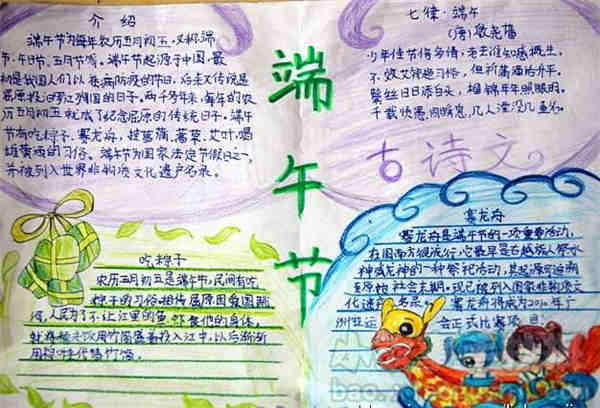 介绍
端午节为每年农历五月初五,又称端
节、午日节、五月节等。端午节起源于中国,最
初是我国人们以祛病防疫的节日,后来又传说是
屈原投汨罗江殉国的日子。两千多年来,每年的农
历五月初五就成了纪念屈原的传统日子。端午
节有吃粽子,赛龙舟,挂菖蒲、蒿草、艾叶,喝
雄黄酒的习俗。端午节为国家法定节假日之一,
并被列入世界非物质文化遗产名录。
七律·端午
(唐)殷尧藩
少年佳节倍多情,老去谁知感慨生。
不效艾符趋习俗,但祈蒲酒话升平。
鬓丝日日添白头,榴锦年年照眼明。
千载贤愚同瞬息,几人湮没几垂名。
古诗文
端午节
吃粽子
农历五月初五是端午节,民间有吃
粽子的习俗。相传屈原因爱国跳
河,人民为了不让江里的鱼、虾食他的身体,
用竹筒
投入江中,以后渐渐
用粽叶代替竹筒。
赛龙舟
赛龙舟是端午节的一项重要活动,
在国南方很流行,它最早是古越族人祭水
神或龙神的一种祭祀活动,其起源可追溯
至原始社会末期。现已被列入国家非物质文
化遗产名录。赛龙舟将成为2010年广
州亚运会正式比赛项目。